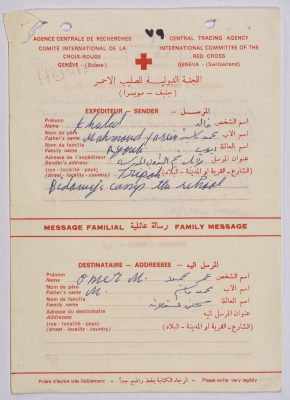 ٧٩
AGENCE CENTRALE DE RECHERCHES
COMITÉ INTERNATIONAL DE LA
CROIX-ROUGE
GENÈVE - (Suisse)
CENTRAL TRACING AGENCY
INTERNATIONAL COMMITTEE OF THE
RED CROSS
GENEVA - (Switzerland)
اللجنة الدولية للصليب الاحمر
(جنيف - سويسرا)
EXPÉDITEUR - SENDER المرسل
Prénom
Name Khaled خالد اسم الشخص
Nom de père
Father's name Mahmoud محمد اسم الاب
Nom de famille
Family name Ayoub ايوب اسم العائلة
Adresse de l'expéditeur
Sender's address عنوان المرسل
(rue - localité - pays)
(street - locality - country) Tripoli (الشارع - القرية او المدينة - البلاد)
camp the school
MESSAGE FAMILIAL رسالة عائلية FAMILY MESSAGE
DESTINATAIRE - ADDRESSEE المرسل اليه
Prénom
Name Omer M. عمر اسم الشخص
Nom de père
Father's name M. محمد اسم الاب
Nom de famille
Family name اسم العائلة
Adresse du destinataire
Addresses عنوان المرسل اليه
(rue - localité - pays)
(street - locality - country) (الشارع - القرية او المدينة - البلاد)
Prière d'écrire très lisiblement - الرجاء الكتابة بخط واضح جداً - Please write very legibly